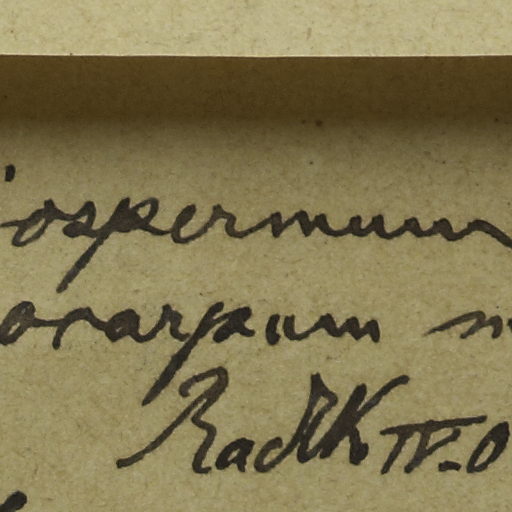 iospermum
orarpum
Radlk IV-0